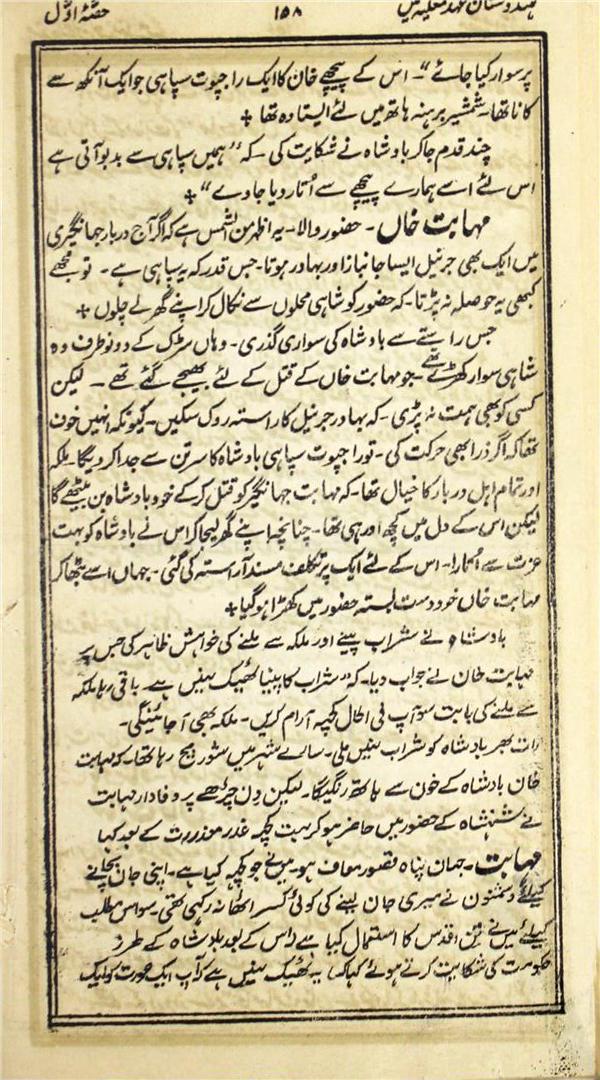 ہندوستان عہد مغلیہ میں ۱۵۸ حصّہ اوّل
پر سوار کیا جائے"۔ اس کے پیچھے خان کا ایک راجپوت سپاہی جو ایک آنکھ سے
کانا تھا۔ شمشیر برہنہ ہاتھ میں لئے ایستادہ تھا +
چند قدم جا کر بادشاہ نے شکایت کی۔ کہ "ہمیں سپاہی سے بدبو آتی ہے
اس لئے اسے ہمارے پیچھے سے اُتار دیا جاوے" +
مہابت خاں۔ حضور والا۔ یہ اظہر من الشمس ہے کہ اگر آج دربار جہانگیری
میں ایک بھی جرنیل ایسا جانباز اور بہادر ہوتا۔ جس قدر کہ یہ سپاہی ہے۔ تو مجھے
کبھی یہ حوصلہ نہ پڑتا۔ کہ حضور کو شاہی محلوں سے نکال کر اپنے گھر لے چلوں +
جس راستے سے بادشاہ کی سواری گذری۔ وہاں سڑک کے دونو طرف وہ
شاہی سوار کھڑے تھے۔ جو مہابت خاں کے قتل کے لئے بھیجے گئے تھے۔ لیکن
کسی کو بھی ہمت نہ پڑی۔ کہ بہادر جرنیل کا راستہ روک سکیں۔ کیونکہ انہیں خوف
تھا کہ اگر ذرا بھی حرکت کی۔ تو راجپوت سپاہی بادشاہ کا سر تن سے جدا کر دیگا۔ ملکہ
اور تمام اہل دربار کا خیال تھا۔ کہ مہابت جہانگیر کو قتل کر کے خود بادشاہ بن بیٹھے گا
لیکن اس کے دل میں کچھ اور ہی تھا۔ چنانچہ اپنے گھر لیجا کر اس نے بادشاہ کو بہت
عزت سے اُتارا۔ اس کے لئے ایک پرتکلف مسند آراستہ کی گئی۔ جہاں اسے بٹھا کر
مہابت خاں خود دست بستہ حضور میں کھڑا ہو گیا +
بادشاہ نے شراب پینے اور ملکہ سے ملنے کی خواہش ظاہر کی جس پر
مہابت خان نے جواب دیا۔ کہ "شراب کا پینا ٹھیک نہیں ہے۔ باقی رہا ملکہ
سے ملنے کی بابت سو آپ فی الحال کچھ آرام کریں۔ ملکہ بھی آ جائینگی۔
رات بھر بادشاہ کو شراب نہیں ملی۔ سارے شہر میں شور مچ رہا تھا۔ کہ مہابت
خان بادشاہ کے خون سے ہاتھ رنگیگا۔ لیکن دن چڑھے پر وفادار مہابت
نے شہنشاہ کے حضور میں حاضر ہو کر بہت کچھ عذر معذرت کے بعد کہا
مہابت۔ جہان پناہ قصور معاف ہو۔ میں نے جو کچھ کیا ہے۔ اپنی جان بچانے
کیلئے دشمنوں نے میری جان لینے کی کوئی کسر اٹھا نہ رکھی تھی۔ سو اس مطلب
کیلئے میں نے تن اقدس کا استعمال کیا ہے اس کے بعد بادشاہ کے طرز
حکومت کی شکایت کرتے ہوئے کہا کہ یہ ٹھیک نہیں ہے کہ آپ ایک عورت کو ایک